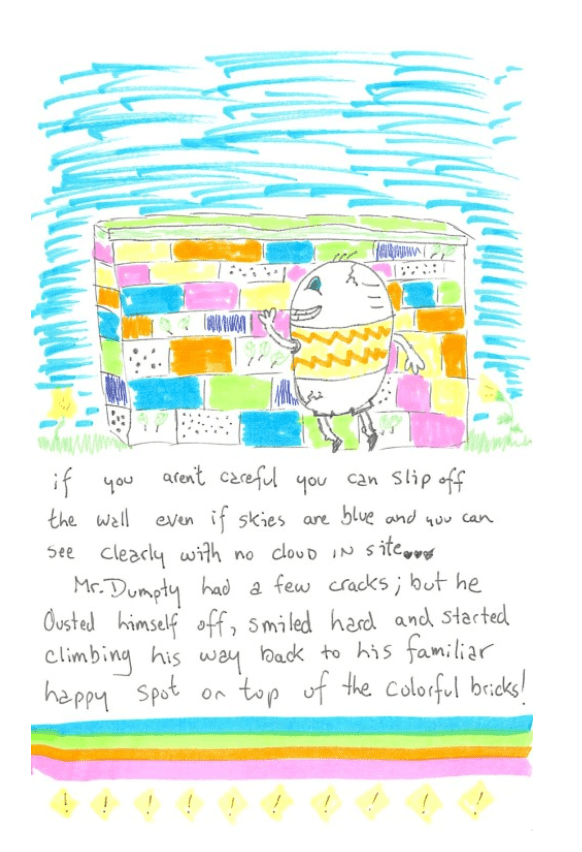 if you aren't careful you can slip off
the wall even if skies are blue and you can
see clearly with no cloud in site...
Mr. Dumpty had a few cracks; but he
Dusted himself off, smiled hard and started
climbing his way back to his familiar
happy spot on top of the colorful bricks!
! ! ! ! ! ! ! ! ! !